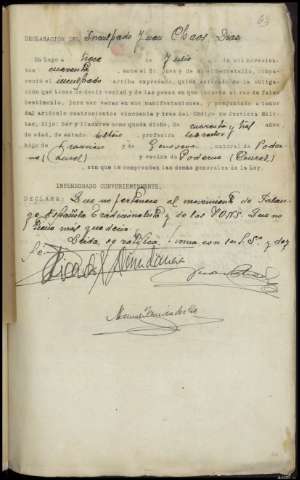 63
DECLARACIÓN DEL Inculpado Juan Chaos Dias
En Lugo a trece de Julio de mil novecien-
tos cuarenta, ante el Sr. Juez y de mi el Secretario, compa-
reció el inculpado, quien enterado de la obliga-
ción que tiene de decir verdad y de las penas en que incurre el reo de falso
testimonio, juró ser veraz en sus manifestaciones, y preguntado a tenor
del artículo cuatrocientos cincuenta y tres del Código de Justicia Mili-
tar, dijo: Ser y llamarse como queda dicho, de cuarenta y tres años
de edad, de estado soltero, profesión
hijo de y Genoveva, natural de Pode-
mo (Lugo) y vecino de Podemo (Lugo)
que no le comprenden las demás generales de la Ley.
INTERROGADO CONVENIENTEMENTE.
DECLARA: Que no pertenece al movimiento de Falan-
ge Española Tradicionalista y de las JONS. Que no
tiene mas que decir
Leida, se ratifica firma con su Sª y doy
fe.